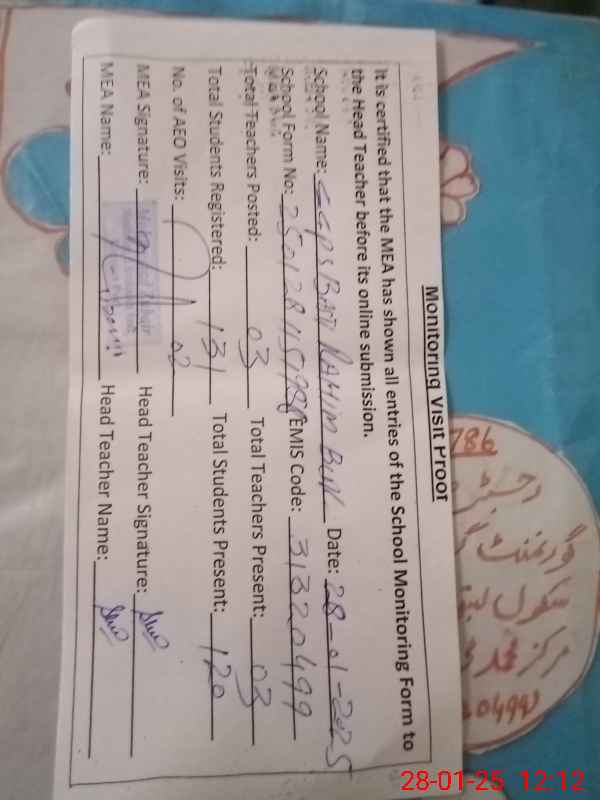 Monitoring Visit Proof
It is certified that the MEA has shown all entries of the School Monitoring Form to
the Head Teacher before its online submission.
School Name: GGPS BAIT RAHIM BUX Date: 28-01-2025
School Form No: EMIS Code: 31320499
Total Teachers Posted: 03 Total Teachers Present: 03
Total Students Registered: 131 Total Students Present: 120
No. of AEO Visits: 02
MEA Signature: Head Teacher Signature:
MEA Name: Head Teacher Name:
786
گورنمنٹ
سکول
مرکز
0499
28-01-25 12:12